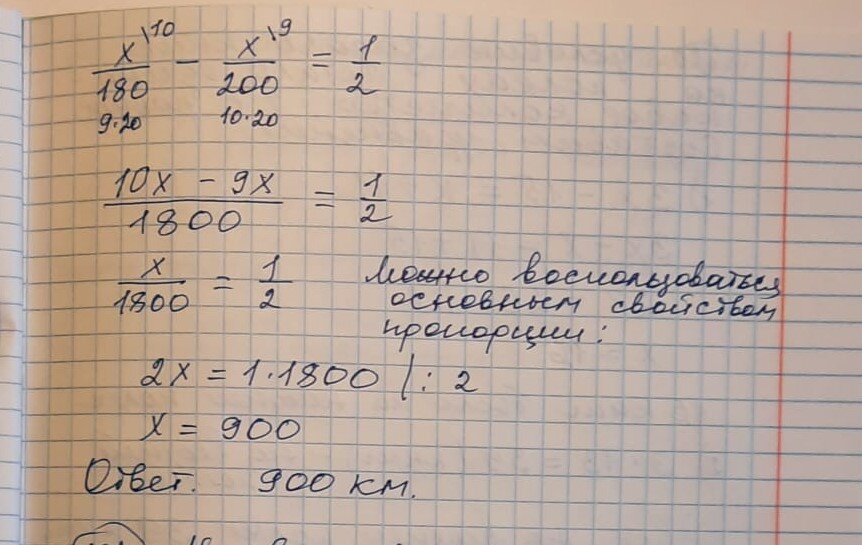 x\10 / 180 − x\9 / 200 = 1/2
9·20 10·20
10x − 9x / 1800 = 1/2
x/1800 = 1/2 Можно воспользоваться
основным свойством
пропорции:
2x = 1·1800 |: 2
x = 900
Ответ. 900 км.